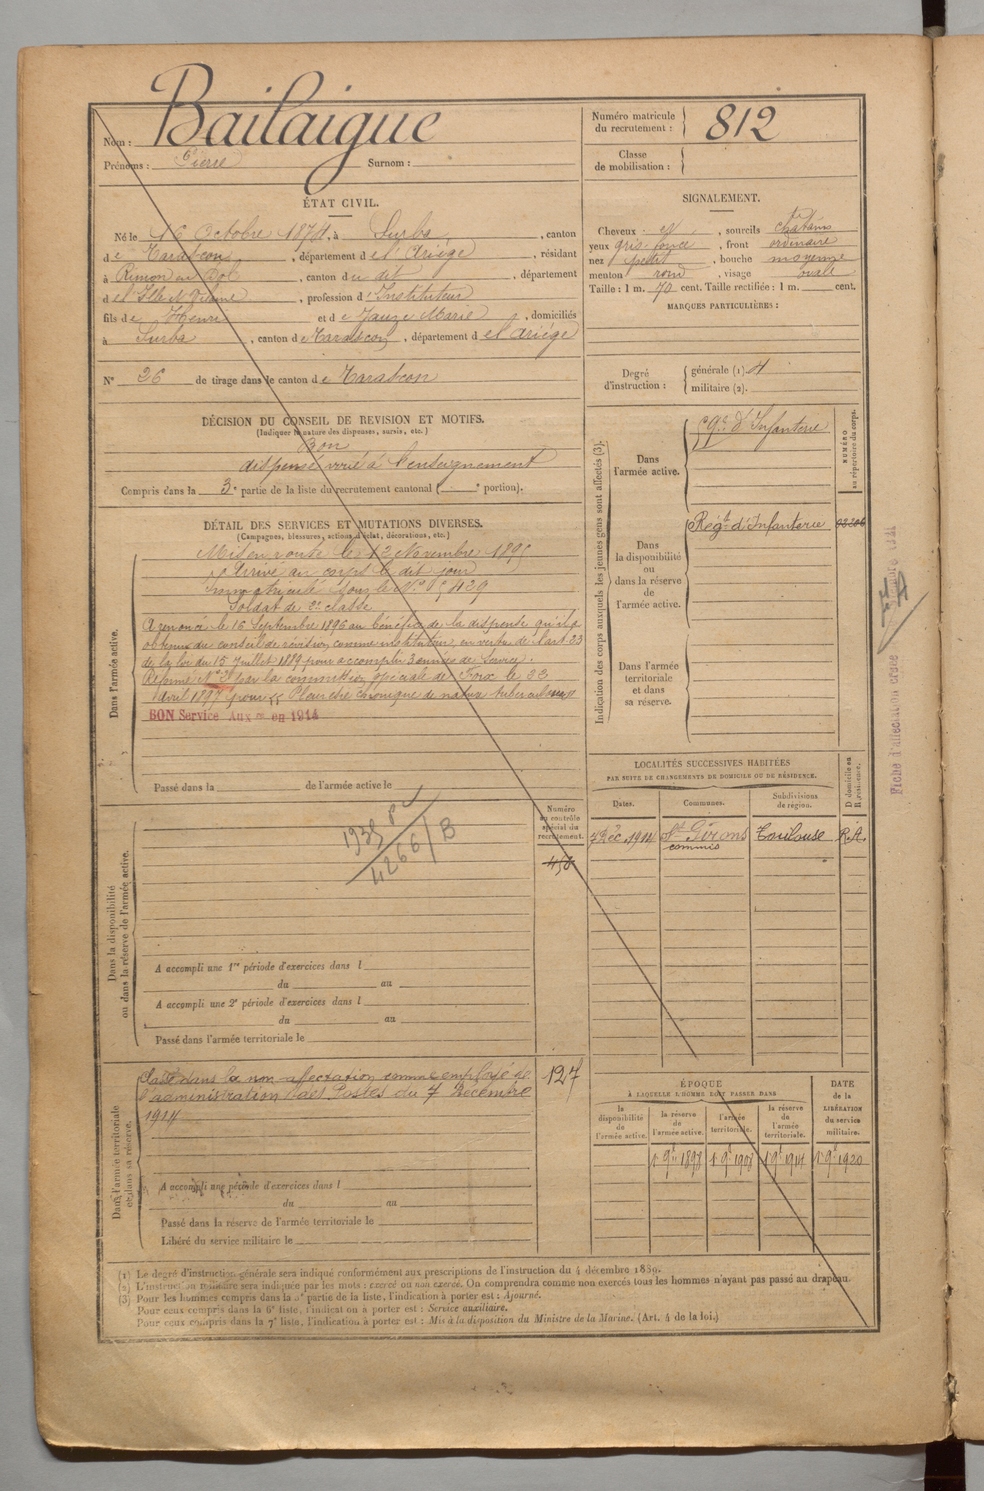 Nom : Bailaigue
Prénoms : Pierre Surnom :
Numéro matricule du recrutement : 812
Classe de mobilisation :
ÉTAT CIVIL.
Né le 16 Octobre 1874, à Surba, canton
de Tarascon, département de l'Ariège, résidant
à Rimon, canton du dit, département
d el'Ille et Vilaine, profession d'Instituteur
fils de Henri et de Jauze Marie, domiciliés
à Surba, canton de Tarascon, département de l'Ariège
N° 26 de tirage dans le canton de Tarascon
SIGNALEMENT.
Cheveux et, sourcils chatains
yeux gris foncé, front ordinaire
nez petit, bouche moyenne
menton rond, visage ovale
Taille : 1 m. 70 cent. Taille rectifiée : 1 m. cent.
MARQUES PARTICULIÈRES :
Degré d'instruction : générale (1). 4
militaire (2).
DÉCISION DU CONSEIL DE REVISION ET MOTIFS.
(Indiquer la nature des dispenses, sursis, etc.)
Bon
dispensé voué à l'enseignement
Compris dans la 3e partie de la liste du recrutement cantonal ( e portion).
DÉTAIL DES SERVICES ET MUTATIONS DIVERSES.
(Campagnes, blessures, actions d'éclat, décorations, etc.)
Dans l'armée active.
Mis en route le 12 Novembre 1895
Arrivé au corps le dit jour
Immatriculé sous le N°
Soldat de 2e classe
A renoncé le 16 Septembre 1896 au bénéfice de la dispense qu'il a
obtenue du conseil de révision comme instituteur, en vertu de l'art 23
de la loi du 15 Juillet 1889 pour accomplir 3 années de service.
Réformé N° 2 par la commission spéciale de Foix le 22
Avril 1897 pour " Pleurésie chronique de nature tuberculeuse "
BON Service Auxre en 1914
Passé dans la de l'armée active le
Indication des corps auxquels les jeunes gens sont affectés (3).
NUMÉRO au répertoire du corps.
Dans l'armée active.
59e d'Infanterie
Dans la disponibilité ou dans la réserve de l'armée active.
Régt d'Infanterie
Dans l'armée territoriale et dans sa réserve.
Fiche d'affectation créée
LOCALITÉS SUCCESSIVES HABITÉES
PAR SUITE DE CHANGEMENTS DE DOMICILE OU DE RÉSIDENCE.
Dates. Communes. Subdivisions de région. D domicile ou R résidence.
7 Déc. 1914 St Girons Toulouse R.A.
commis
Numéro au contrôle spécial du recrutement.
Dans la disponibilité ou dans la réserve de l'armée active.
4266/B
A accompli une 1re période d'exercices dans l
du au
A accompli une 2e période d'exercices dans l
du au
Passé dans l'armée territoriale le
Dans l'armée territoriale et dans sa réserve.
Classé dans la non affectation comme employé de
l'administration des Postes du 7 Décembre
1914
127
A accompli une période d'exercices dans l
du au
Passé dans la réserve de l'armée territoriale le
Libéré du service militaire le
ÉPOQUE
À LAQUELLE L'HOMME DOIT PASSER DANS
DATE de la LIBÉRATION du service militaire.
la disponibilité de l'armée active. la réserve de l'armée active. l'armée territoriale. la réserve de l'armée territoriale.
1 9e 1897 1 9e 1908 1 9e 1914 1 9e 1920
(1) Le degré d'instruction générale sera indiqué conformément aux prescriptions de l'instruction du 4 décembre 1889.
(2) L'instruction militaire sera indiquée par les mots : exercé ou non exercé. On comprendra comme non exercés tous les hommes n'ayant pas passé au drapeau.
(3) Pour les hommes compris dans la 5e partie de la liste, l'indication à porter est : Ajourné.
Pour ceux compris dans la 6e liste, l'indication à porter est : Service auxiliaire.
Pour ceux compris dans la 7e liste, l'indication à porter est : Mis à la disposition du Ministre de la Marine. (Art. 4 de la loi.)